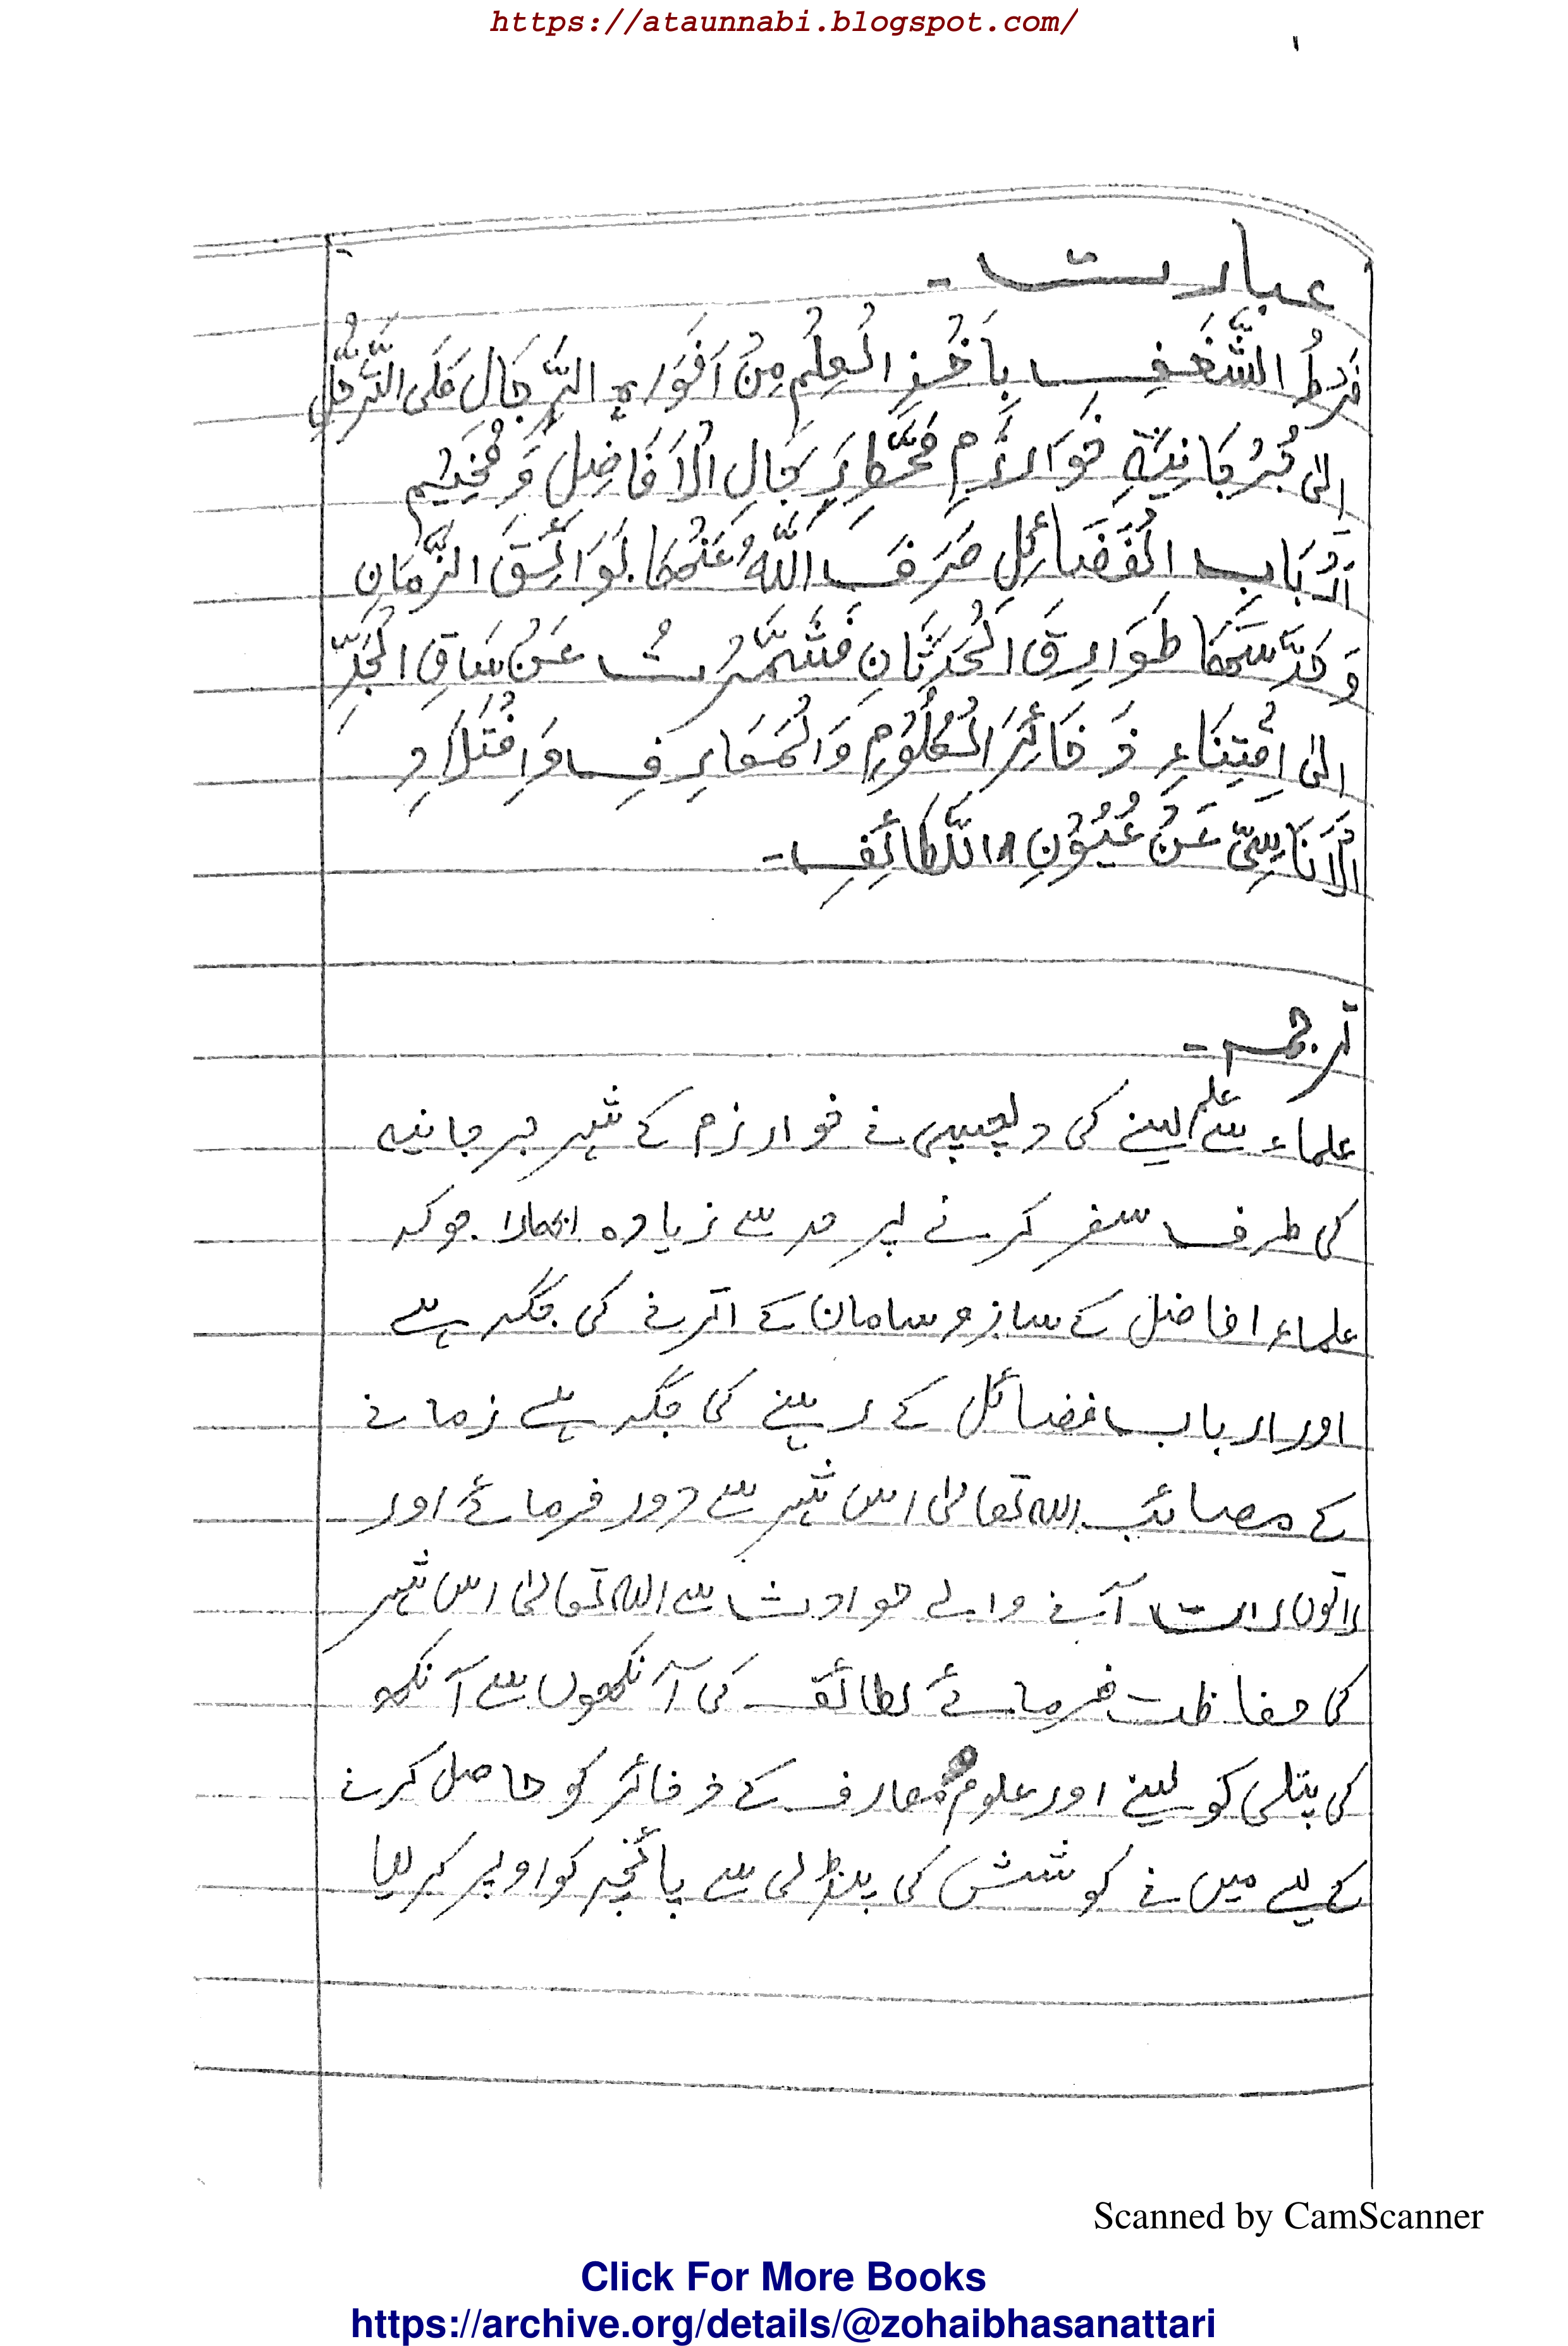 https://ataunnabi.blogspot.com/
۱
عبارت۔
فَرْطُ الشَّغَفِ بِاَخْذِ الْعِلْمِ مِنْ اَفْوَاہِ الرِّجَالِ عَلَی التَّرَحُّلِ
اِلٰی جُرْجَانِیَّۃِ خَوَارَزْمِ مَحَطِّ رِحَالِ الْاَفَاضِلِ وَ مُخَیَّمِ
اَرْبَابِ الْفَضَائِلِ صَرَفَ اللّٰہُ عَنْھَا بَوَائِقَ الزَّمَانِ
وَ حَرَّسَھَا طَوَارِقَ الْحَدَثَانِ فَشَمَّرْتُ عَنْ سَاقِ الْجِدِّ
اِلٰی اِقْتِنَاءِ ذَخَائِرَ الْعُلُوْمِ وَالْمَعَارِفِ وَافْتِلَاذِ
الْاَنَاسِیِّ عَنْ عُیُوْنِ اللَّطَائِفِ۔
ترجمہ۔
علماء سے علم لینے کی دلچسپی نے خوارزم کے شہر جرجانیہ
کی طرف سفر کرنے پر حد سے زیادہ ابھارا جوکہ
علماء افاضل کے ساز و سامان کے اترنے کی جگہ ہے
اور ارباب فضائل کے رہنے کی جگہ ہے زمانے
کے مصائب اللہ تعالیٰ اس شہر سے دور فرمائے اور
راتوں رات آنے والے حوادث سے اللہ تعالیٰ اس شہر
کی حفاظت فرمائے لطائف کی آنکھوں سے آنکھ
کی پتلی کو لینے اور علوم معارف کے ذخائر کو حاصل کرنے
کے لیے میں نے کوشش کی پنڈلی سے پائنچہ کو اوپر کر لیا
Scanned by CamScanner
Click For More Books
https://archive.org/details/@zohaibhasanattari